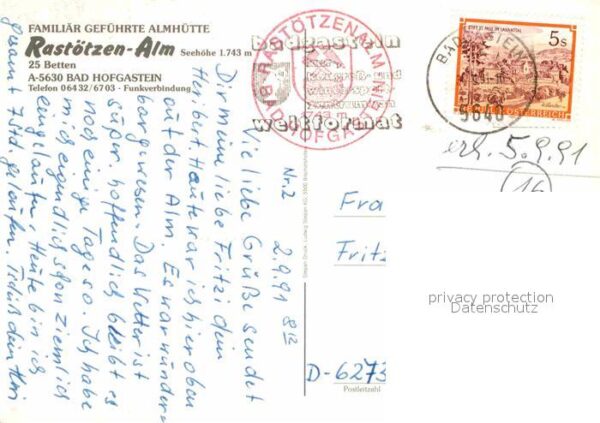 FAMILIÄR GEFÜHRTE ALMHÜTTE
Rastötzen-Alm Seehöhe 1.743 m
25 Betten
A-5630 BAD HOFGASTEIN
Telefon 06432/6703 · Funkverbindung
badgastein
weltformat
RASTÖTZENALM
BAD HOFGAST
BADGASTEIN
5640
5s
REPUBLIK ÖSTERREICH
erh. 5.9.91
16
Nr. 2 2.9.91 8 12
Viele liebe Grüße sendet
Dir meine liebe Fritzi dein
Heribert. Heute war ich hier oben
auf der Alm. Es war wunder-
bar gewesen. Das Wetter ist
super hoffendlich bleibt es
noch einige Tage so. Ich habe
mich eigendlich schon ziemlich
eingelaufen. Heute bin ich
gesamt 7 Std. gelaufen. Tschüß dein
Fra
Fritz
D-6273
Postleitzahl
privacy protection
Datenschutz